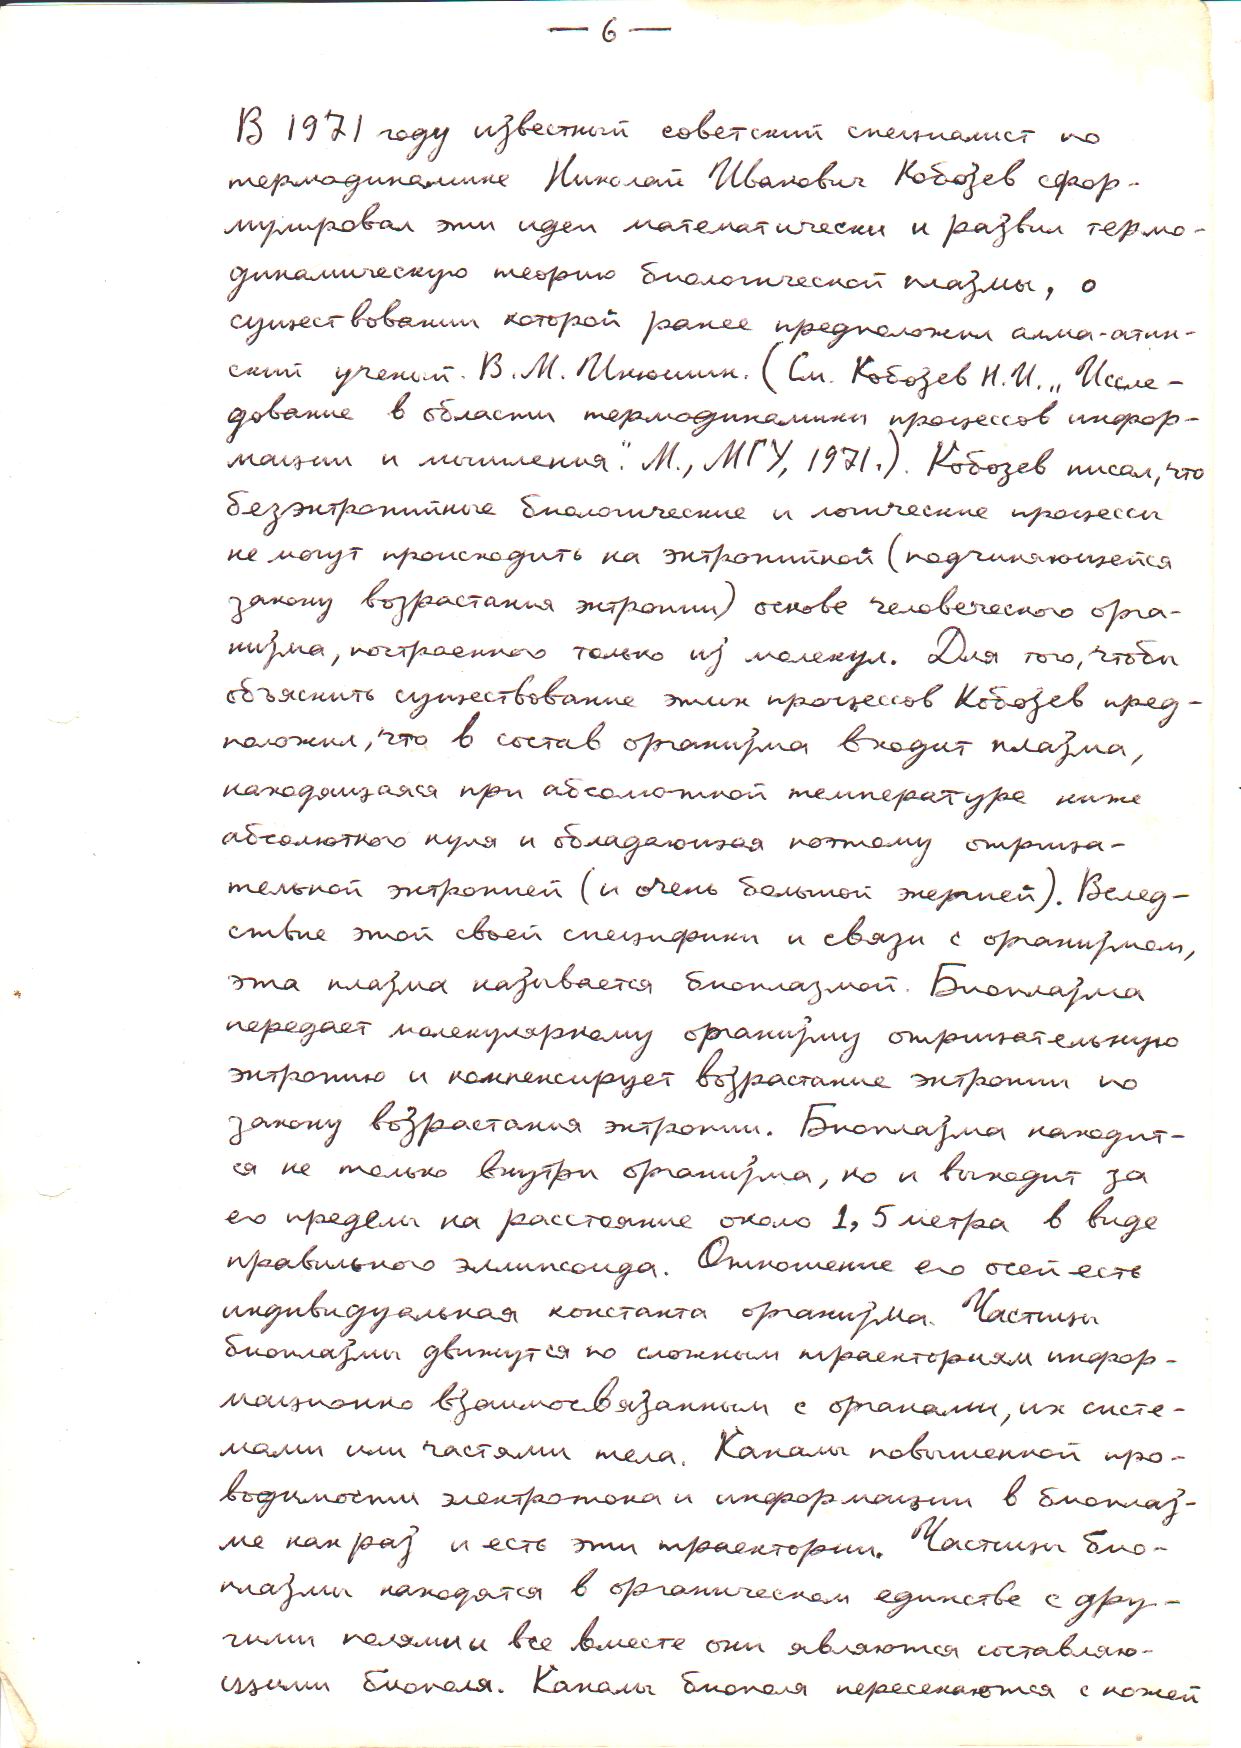 — 6 —
В 1971 году известный советский специалист по
термодинамике Николай Иванович Кобозев сфор-
мулировал эти идеи математически и развил термо-
динамическую теорию биологической плазмы, о
существовании которой ранее предположил алма-атин-
ский ученый В.М. Инюшин. (См. Кобозев Н.И. „Иссле-
дование в области термодинамики процессов инфор-
мации и мышления". М., МГУ, 1971.). Кобозев писал, что
безэнтропийные биологические и логические процессы
не могут происходить на энтропийной (подчиняющейся
закону возрастания энтропии) основе человеческого орга-
низма, построенного только из молекул. Для того, чтобы
объяснить существование этих процессов Кобозев пред-
положил, что в состав организма входит плазма,
находящаяся при абсолютной температуре ниже
абсолютного нуля и обладающая поэтому отрица-
тельной энтропией (и очень большой энергией). Вслед-
ствие этой своей специфики и связи с организмом,
эта плазма называется биоплазмой. Биоплазма
передает молекулярному организму отрицательную
энтропию и компенсирует возрастание энтропии по
закону возрастания энтропии. Биоплазма находит-
ся не только внутри организма, но и выходит за
его пределы на расстояние около 1,5 метра в виде
правильного эллипсоида. Отношение его осей есть
индивидуальная константа организма. Частицы
биоплазмы движутся по сложным траекториям инфор-
мационно взаимосвязанным с органами, их систе-
мами или частями тела. Каналы повышенной про-
водимости электротока и информации в биоплаз-
ме как раз и есть эти траектории. Частицы био-
плазмы находятся в органическом единстве с дру-
гими полями и все вместе они являются составляю-
щими биополя. Каналы биополя пересекаются с кожей